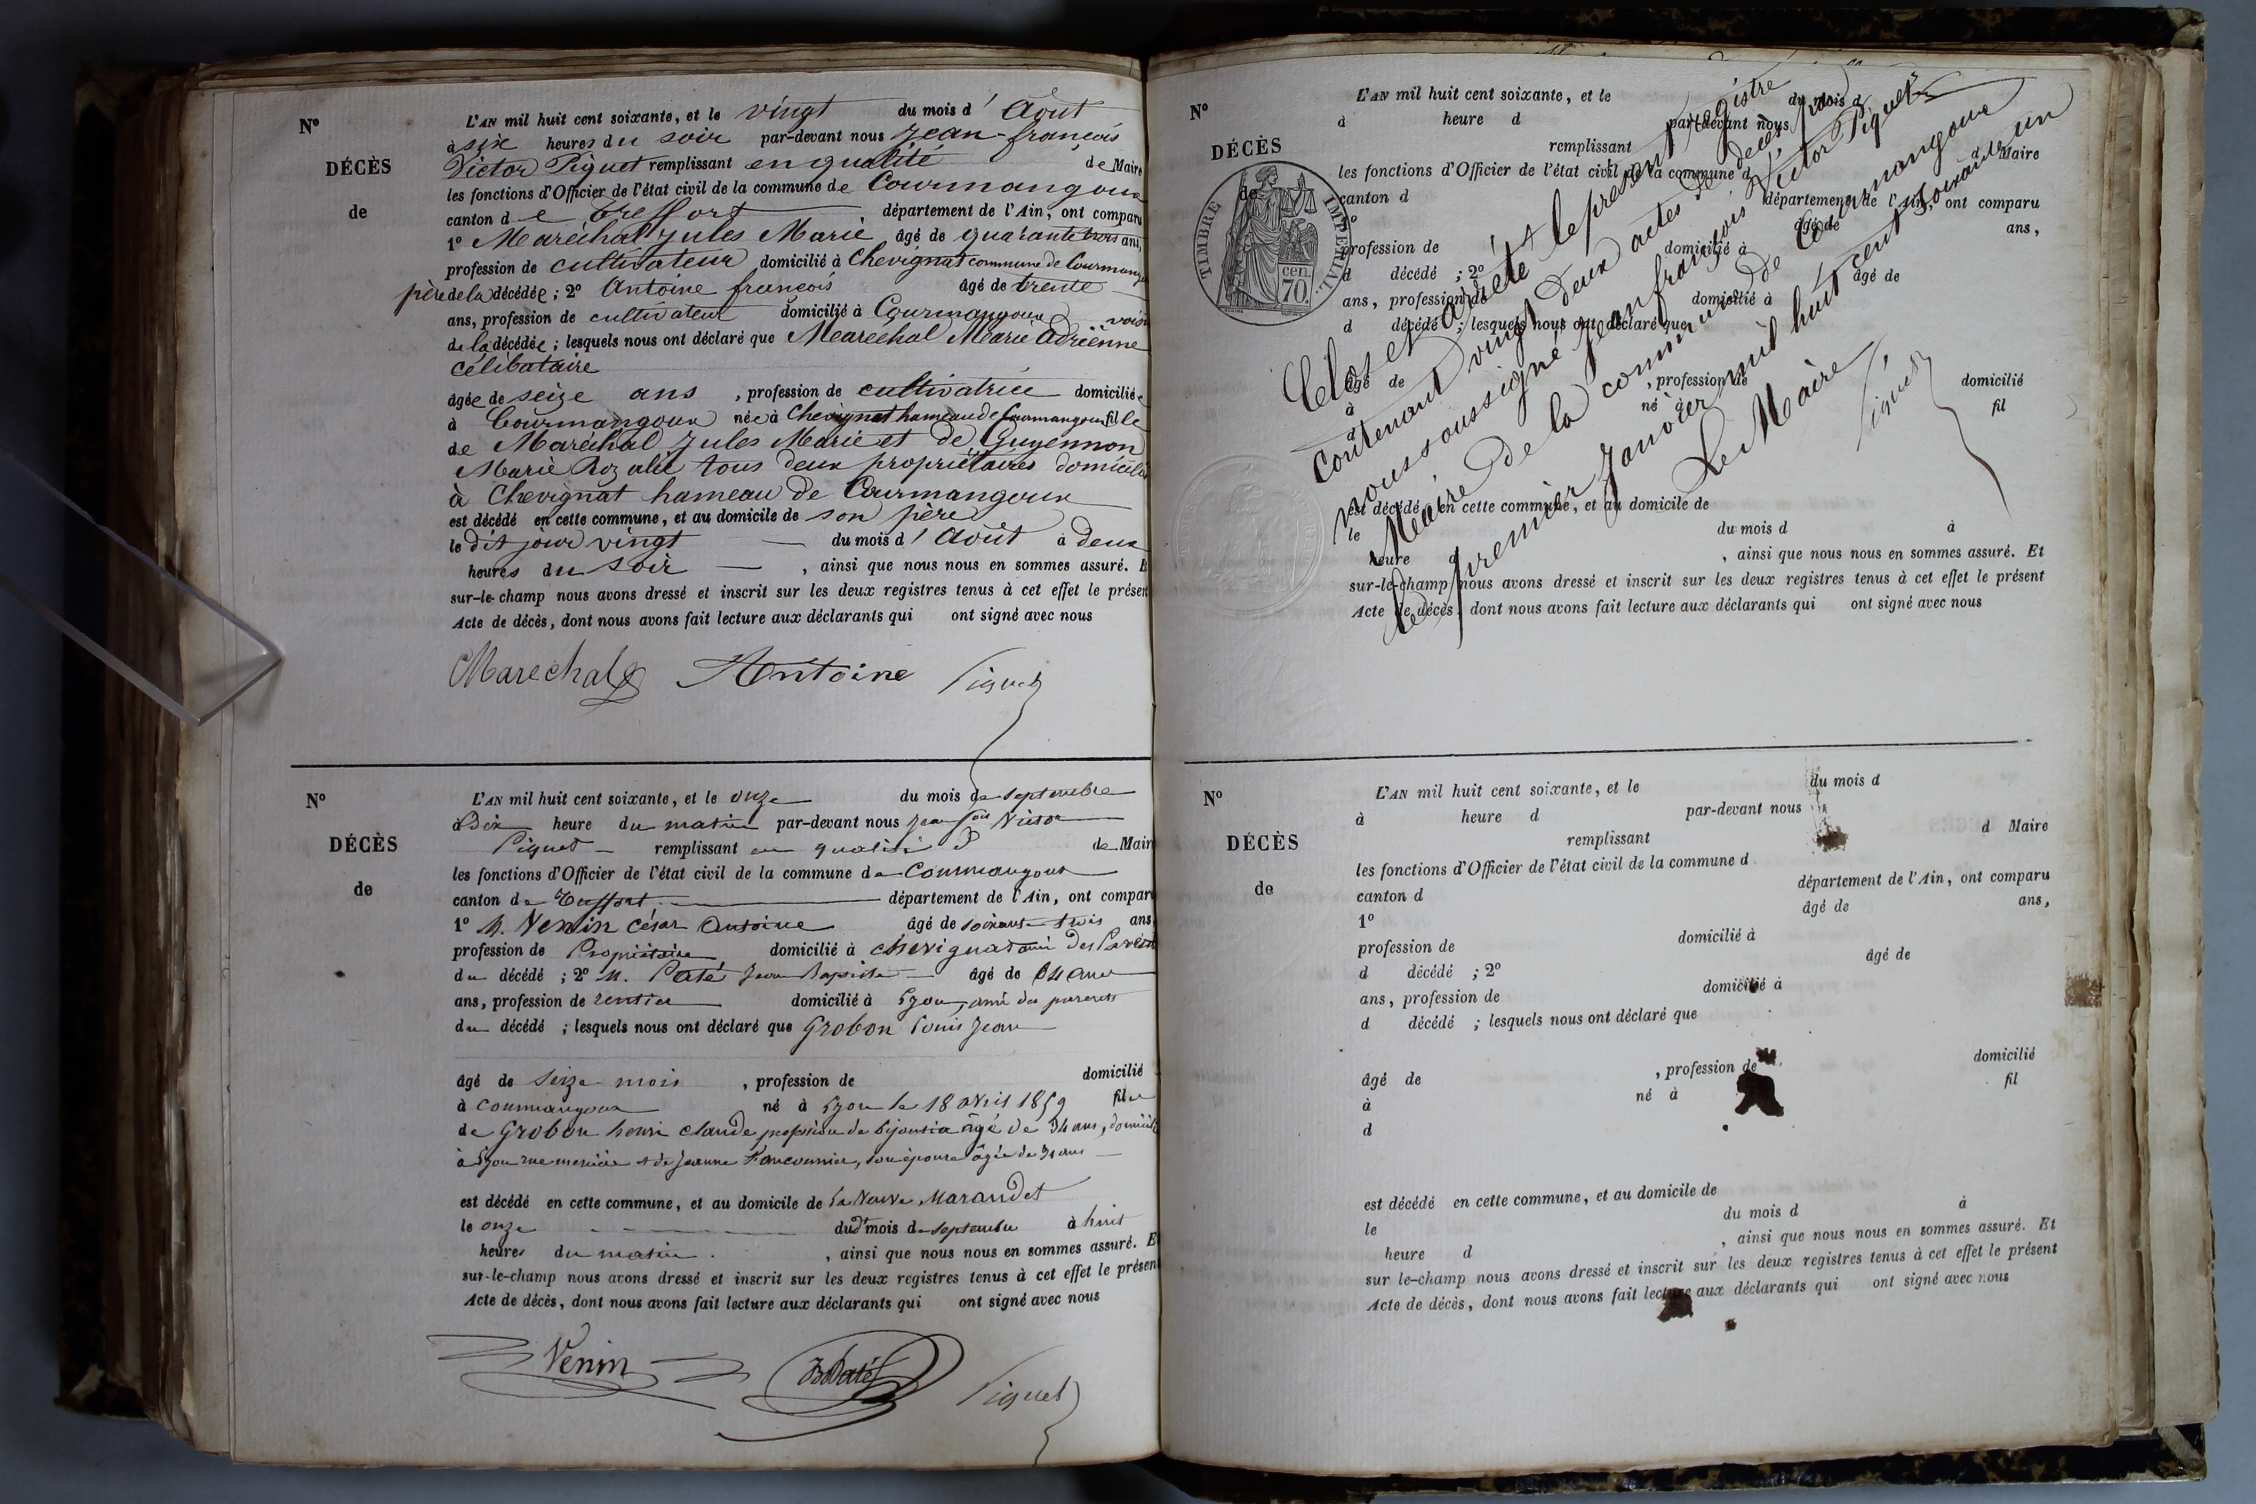 N°
DÉCÈS
de
L'AN mil huit cent soixante, et le vingt du mois d'Août
à six heures du soir par-devant nous Jean-françois
Victor Piquet remplissant en qualité de Maire
les fonctions d'Officier de l'état civil de la commune de Courmangoux
canton de Treffort département de l'Ain, ont comparu
1° Maréchal Jules Marie âgé de quarante trois ans,
profession de cultivateur domicilié à Chevignat commune de Courmangoux
père de la décédée ; 2° Antoine françois âgé de trente
ans, profession de cultivateur domicilié à Courmangoux voisin
de la décédée ; lesquels nous ont déclaré que Maréchal Marie Adriënne
célibataire
âgée de seize ans , profession de cultivatrice domiciliée
à Courmangoux née à Chevignat hameau de Courmangoux fille
de Maréchal Jules Marie et de Guyennon
Marie Rozalie tous deux propriétaires domiciliés
à Chevignat hameau de Courmangoux
est décédé en cette commune, et au domicile de son père
le dit jour vingt du mois d'Août à deux
heures du soir , ainsi que nous nous en sommes assuré. Et
sur-le-champ nous avons dressé et inscrit sur les deux registres tenus à cet effet le présent
Acte de décès, dont nous avons fait lecture aux déclarants qui ont signé avec nous
Marechal Antoine Piquet
N°
DÉCÈS
de
L'AN mil huit cent soixante, et le onze du mois de Septembre
à Dix heure du matin par-devant nous Jean fois Victor
Piquet remplissant en qualité de Maire
les fonctions d'Officier de l'état civil de la commune de Courmangoux
canton de Treffort département de l'Ain, ont comparu
1° M. Venin César Antoine âgé de soixante trois ans
profession de Propriétaire domicilié à chevignat ami des Parents
du décédé ; 2° M. Paté Jean Baptiste âgé de 64 ans
ans, profession de rentier domicilié à Lyon, ami des parents
du décédé ; lesquels nous ont déclaré que Grobon Louis Jean
âgé de seize mois , profession de domicilié
à Courmangoux né à Lyon le 18 avril 1859 fils
de Grobon henri claude profession de bijoutier âgé de 34 ans, domicilié
à Lyon rue mercière et de Jeanne Fauconnier, son épouse âgée de 31 ans
est décédé en cette commune, et au domicile de la Veuve Marandet
le onze dudt mois de septembre à huit
heures du matin , ainsi que nous nous en sommes assuré. Et
sur-le-champ nous avons dressé et inscrit sur les deux registres tenus à cet effet le présent
Acte de décès, dont nous avons fait lecture aux déclarants qui ont signé avec nous
Venin JB Paté Piquet
N°
DÉCÈS
de
TIMBRE IMPÉRIAL
70 cen.
L'AN mil huit cent soixante, et le du mois d
à heure d par-devant nous
remplissant d Maire
les fonctions d'Officier de l'état civil de la commune d
canton d département de l'Ain, ont comparu
1° âgé de ans,
profession de domicilié à
d décédé ; 2° âgé de
ans, profession de domicilié à
d décédé ; lesquels nous ont déclaré que
âgé de , profession de domicilié
à né à fil
d
est décédé en cette commune, et au domicile de
le du mois d à
heure d , ainsi que nous nous en sommes assuré. Et
sur-le-champ nous avons dressé et inscrit sur les deux registres tenus à cet effet le présent
Acte de décès, dont nous avons fait lecture aux déclarants qui ont signé avec nous
Clos et arrêté le présent registre
contenant vingt deux actes de décès par
nous soussigné Jean françois Victor Piquet
Maire de la commune de Courmangoux
le premier Janvier mil huit cent soixante un
Le Maire
Piquet
N°
DÉCÈS
de
L'AN mil huit cent soixante, et le du mois d
à heure d par-devant nous
remplissant d Maire
les fonctions d'Officier de l'état civil de la commune d
canton d département de l'Ain, ont comparu
1° âgé de ans,
profession de domicilié à
d décédé ; 2° âgé de
ans, profession de domicilié à
d décédé ; lesquels nous ont déclaré que
âgé de , profession de domicilié
à né à fil
d
est décédé en cette commune, et au domicile de
le du mois d à
heure d , ainsi que nous nous en sommes assuré. Et
sur le-champ nous avons dressé et inscrit sur les deux registres tenus à cet effet le présent
Acte de décès, dont nous avons fait lecture aux déclarants qui ont signé avec nous